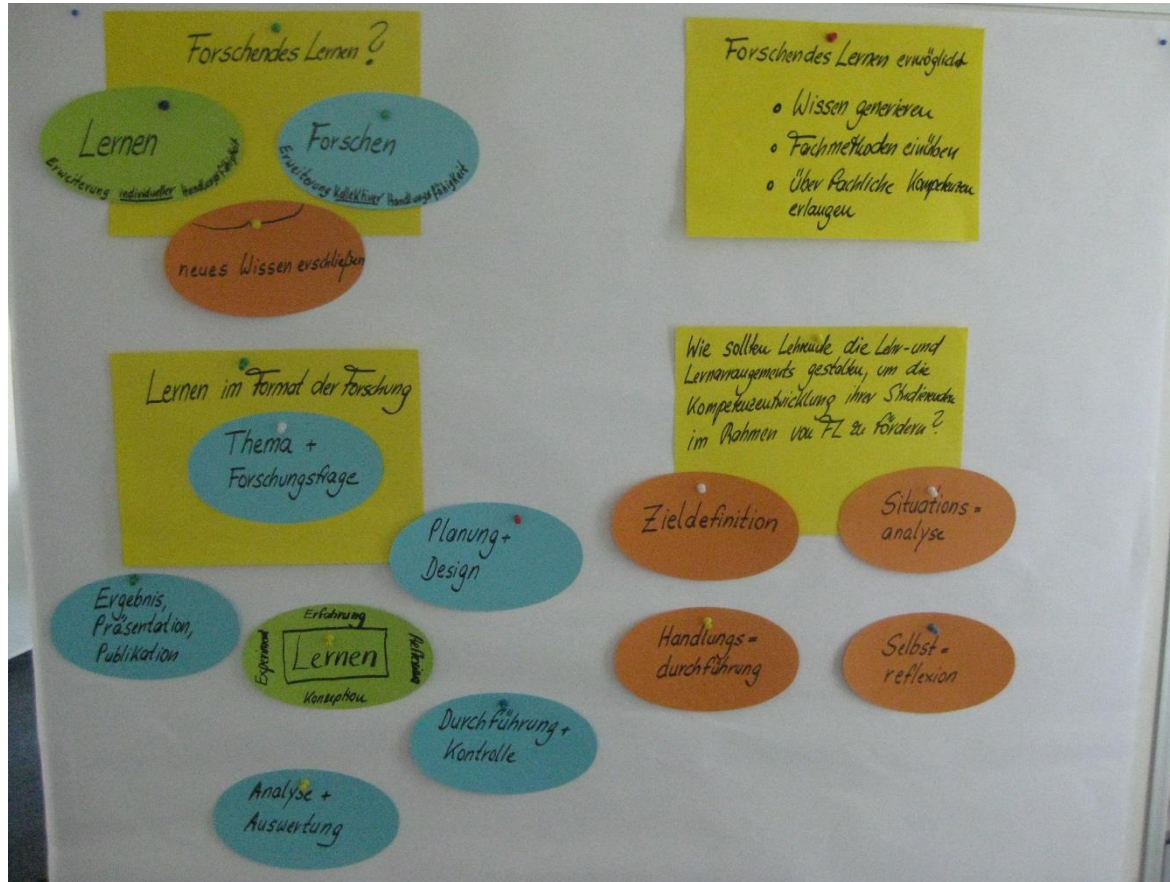 Forschendes Lernen?
Lernen
Erweiterung individueller Handlungsfähigkeit
Forschen
Erweiterung kollektiver Handlungsfähigkeit
neues Wissen erschließen
Forschendes Lernen ermöglicht
• Wissen generieren
• Fachmethoden einüben
• Überfachliche Kompetenzen
erlangen
Lernen im Format der Forschung
Thema +
Forschungsfrage
Planung +
Design
Durchführung +
Kontrolle
Analyse +
Auswertung
Ergebnis,
Präsentation,
Publikation
Erfahrung
Reflexion
Konzeption
Experiment
Lernen
Wie sollten Lehrende die Lehr- und
Lernarrangements gestalten, um die
Kompetenzentwicklung ihrer Studierenden
im Rahmen von FL zu fördern?
Zieldefinition
Situations=
analyse
Handlungs=
durchführung
Selbst=
reflexion